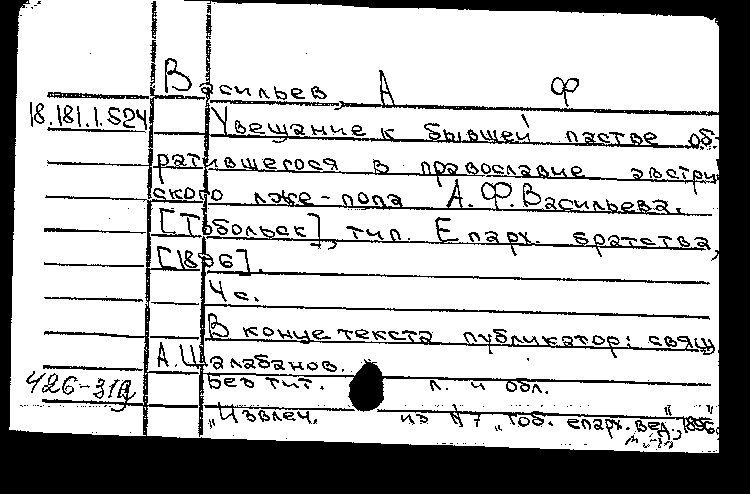 Васильев, А Ф
18.181.1.524 Увещание к бывшей пастве об-
ратившегося в православие австрий
ского лже-попа А.Ф.Васильева.
[Тобольск], тип. Епарх. братства,
[1896].
4 с.
В конце текста публикатор: свящ.
А.Шалабанов.
Без тит. л. и обл.
426-31д
„Извлеч. из №7 „Тоб. епарх. вед.", 1896"